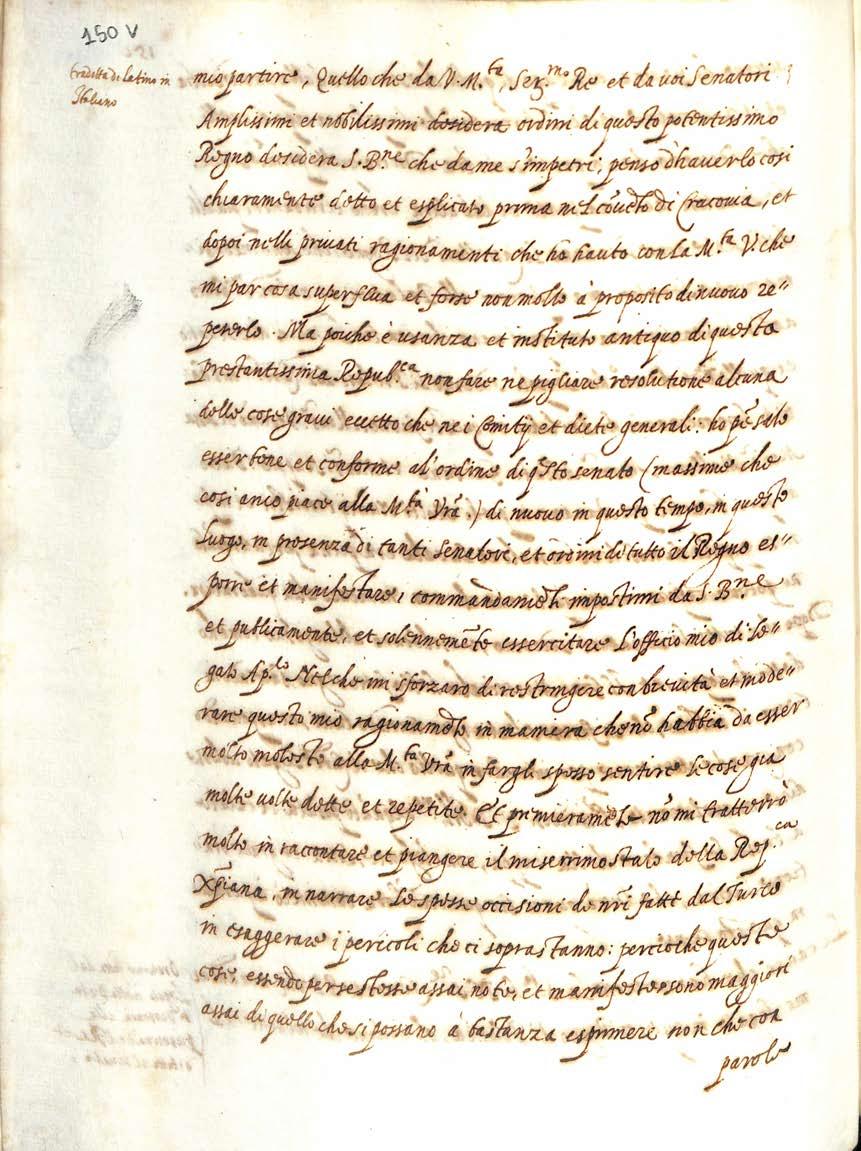 150 V
tradotta di latino in
Italiano
mio partire, Quello che da V. M.tà, Ser.mo Re et da voi Senatori
Amplissimi et nobilissimi desidera ordini di questo potentissimo
Regno desidera S. B.ne che da me s'impetri, penso d'haverlo cosi
chiaramente detto et esplicato prima nel cōvēto di Cracovia, et
dopoi nelli privati ragionamenti che ho hauto con la M.tà V. che
mi par cosa superflua et forse non molto à proposito di nuovo re"
peterlo. Ma poiche è usanza et instituto antiquo di questa
prestantissima Repub.ca non fare ne pigliare resolutione alcuna
delle cose gravi eccetto che nei Comitij et diete generali: ho pēsato
esser bene et conforme al'ordine di q̄sto senato (massime che
cosi anco piace alla M.tà Vr̄a.) di nuovo in questo tempo, in questo
luogo, in presenza di tanti senatori, et ordini di tutto il Regno es"
porre et manifestare i commandamēti impostimi da S. B.ne
et publicamente, et solennemēte essercitare l'officio mio di le"
gato Ap.lo Nel che mi sforzaro di restringere con brevità et mode"
rare questo mio ragionamēto in maniera che nō habbia da esser
molto molesto alla M.tà Vr̄a in fargli spesso sentire le cose già
molte volte dette et repetite. Et primieramēte nō mi tratterrò
molto in raccontare et piangere il miserrimo stato della Rep.ca
Xp̄iana, in narrare le spesse occisioni de nr̄i fatte dal Turco
in esaggerare i pericoli che ci soprastanno: percioche queste
cose, essendo per se stesse assai note, et manifeste sono maggiori
assai di quello che si possano à bastanza esprimere non che con
parole